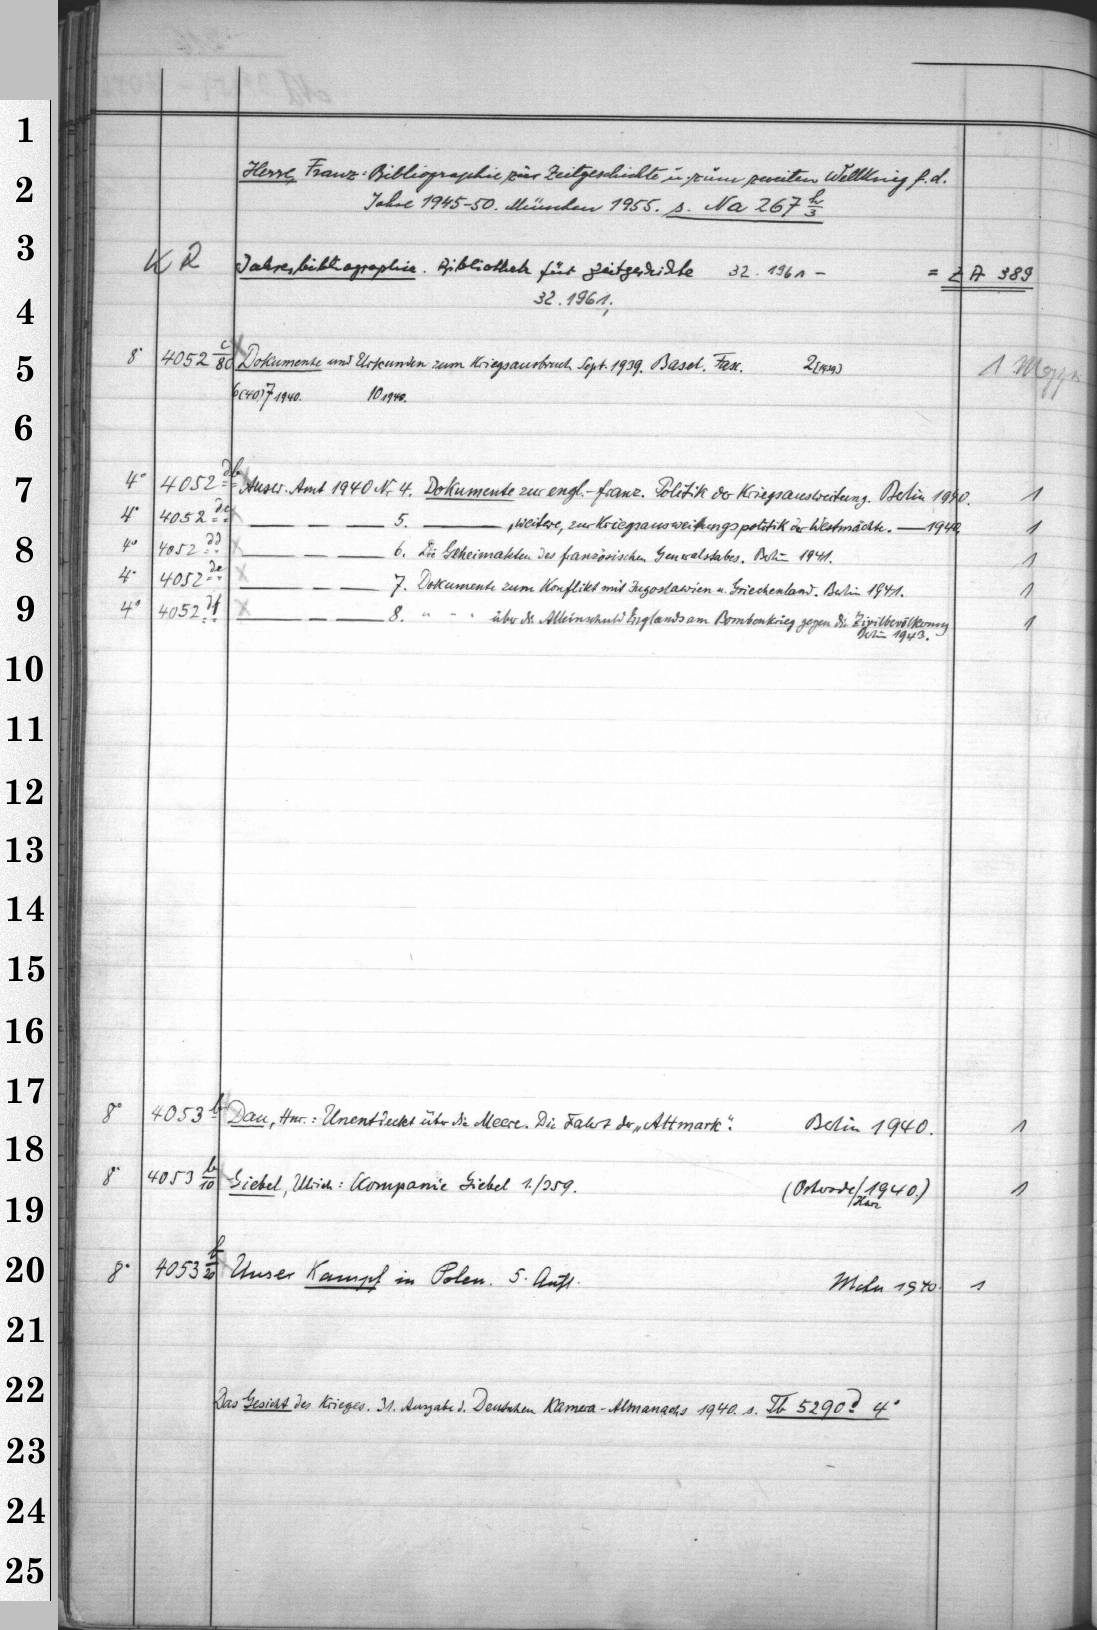 1
2
3
4
5
6
7
8
9
10
11
12
13
14
15
16
17
18
19
20
21
22
23
24
25
Herre, Franz: Bibliographie zur Zeitgeschichte u. zum zweiten Weltkrieg f. d.
Jahre 1945-50. München 1955. s. Na 267 h/3
K R Jahresbibliographie. Bibliothek für Zeitgeschichte 32. 1961 - = Z A 389
32. 1961;
8° 4052 c/80 Dokumente und Urkunden zum Kriegsausbruch Sept. 1939. Basel. Fasc. 2(1939) 1 Mappe
6(40) 7 1940. 10 1940.
4° 4052 db Ausw. Amt 1940 Nr. 4. Dokumente zur engl.-franz. Politik der Kriegsausweitung. Berlin 1940. 1
4° 4052 dc — — — 5. — , weitere, zur Kriegsausweitungspolitik der Westmächte. — 1940. 1
4° 4052 dd — — — 6. Die Geheimakten des französischen Generalstabes. Berlin 1941. 1
4° 4052 de — — — 7. Dokumente zum Konflikt mit Jugoslawien u. Griechenland. Berlin 1941. 1
4° 4052 df — — — 8. " " " über die Alleinschuld Englands am Bombenkrieg gegen die Zivilbevölkerung 1
Berlin 1943.
8° 4053 b Dau, Hnr.: Unentdeckt über die Meere. Die Fahrt der „Altmark". Berlin 1940. 1
8° 4053 b/10 Giebel, Ulrich: Kompanie Giebel 1./359. (Osterode/Harz 1940.) 1
8° 4053 b/20 Unser Kampf in Polen. 5. Aufl. Mchn 1940. 1
Das Gesicht des Krieges. 31. Ausgabe d. Deutschen Kamera-Almanachs 1940. s. Tb 5290 d 4°